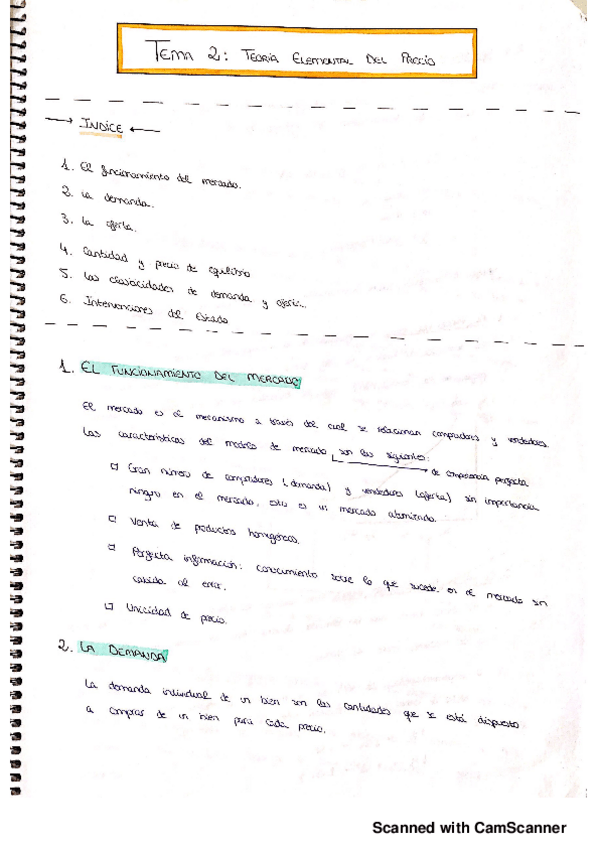 TEMA 2: TEORÍA ELEMENTAL DEL PRECIO
→ ÍNDICE ←
1. El funcionamiento del mercado.
2. La demanda.
3. La oferta.
4. Cantidad y precio de equilibrio
5. Las elasticidades de demanda y oferta.
6. Intervenciones del Estado
1. EL FUNCIONAMIENTO DEL MERCADO
El mercado es el mecanismo a través del cual se relacionan compradores y vendedores.
Las características del modelo de mercado son las siguientes:
de competencia perfecta
Gran número de compradores (demanda) y vendedores (oferta) sin importancia
ninguno en el mercado, esto es un mercado atomizado.
Venta de productos homogéneos.
Perfecta información: conocimiento sobre lo que sucede en el mercado sin
cabida al error.
Unicidad de precio.
2. LA DEMANDA
La demanda individual de un bien son las cantidades que se está dispuesto
a comprar de un bien para cada precio.
Scanned with CamScanner